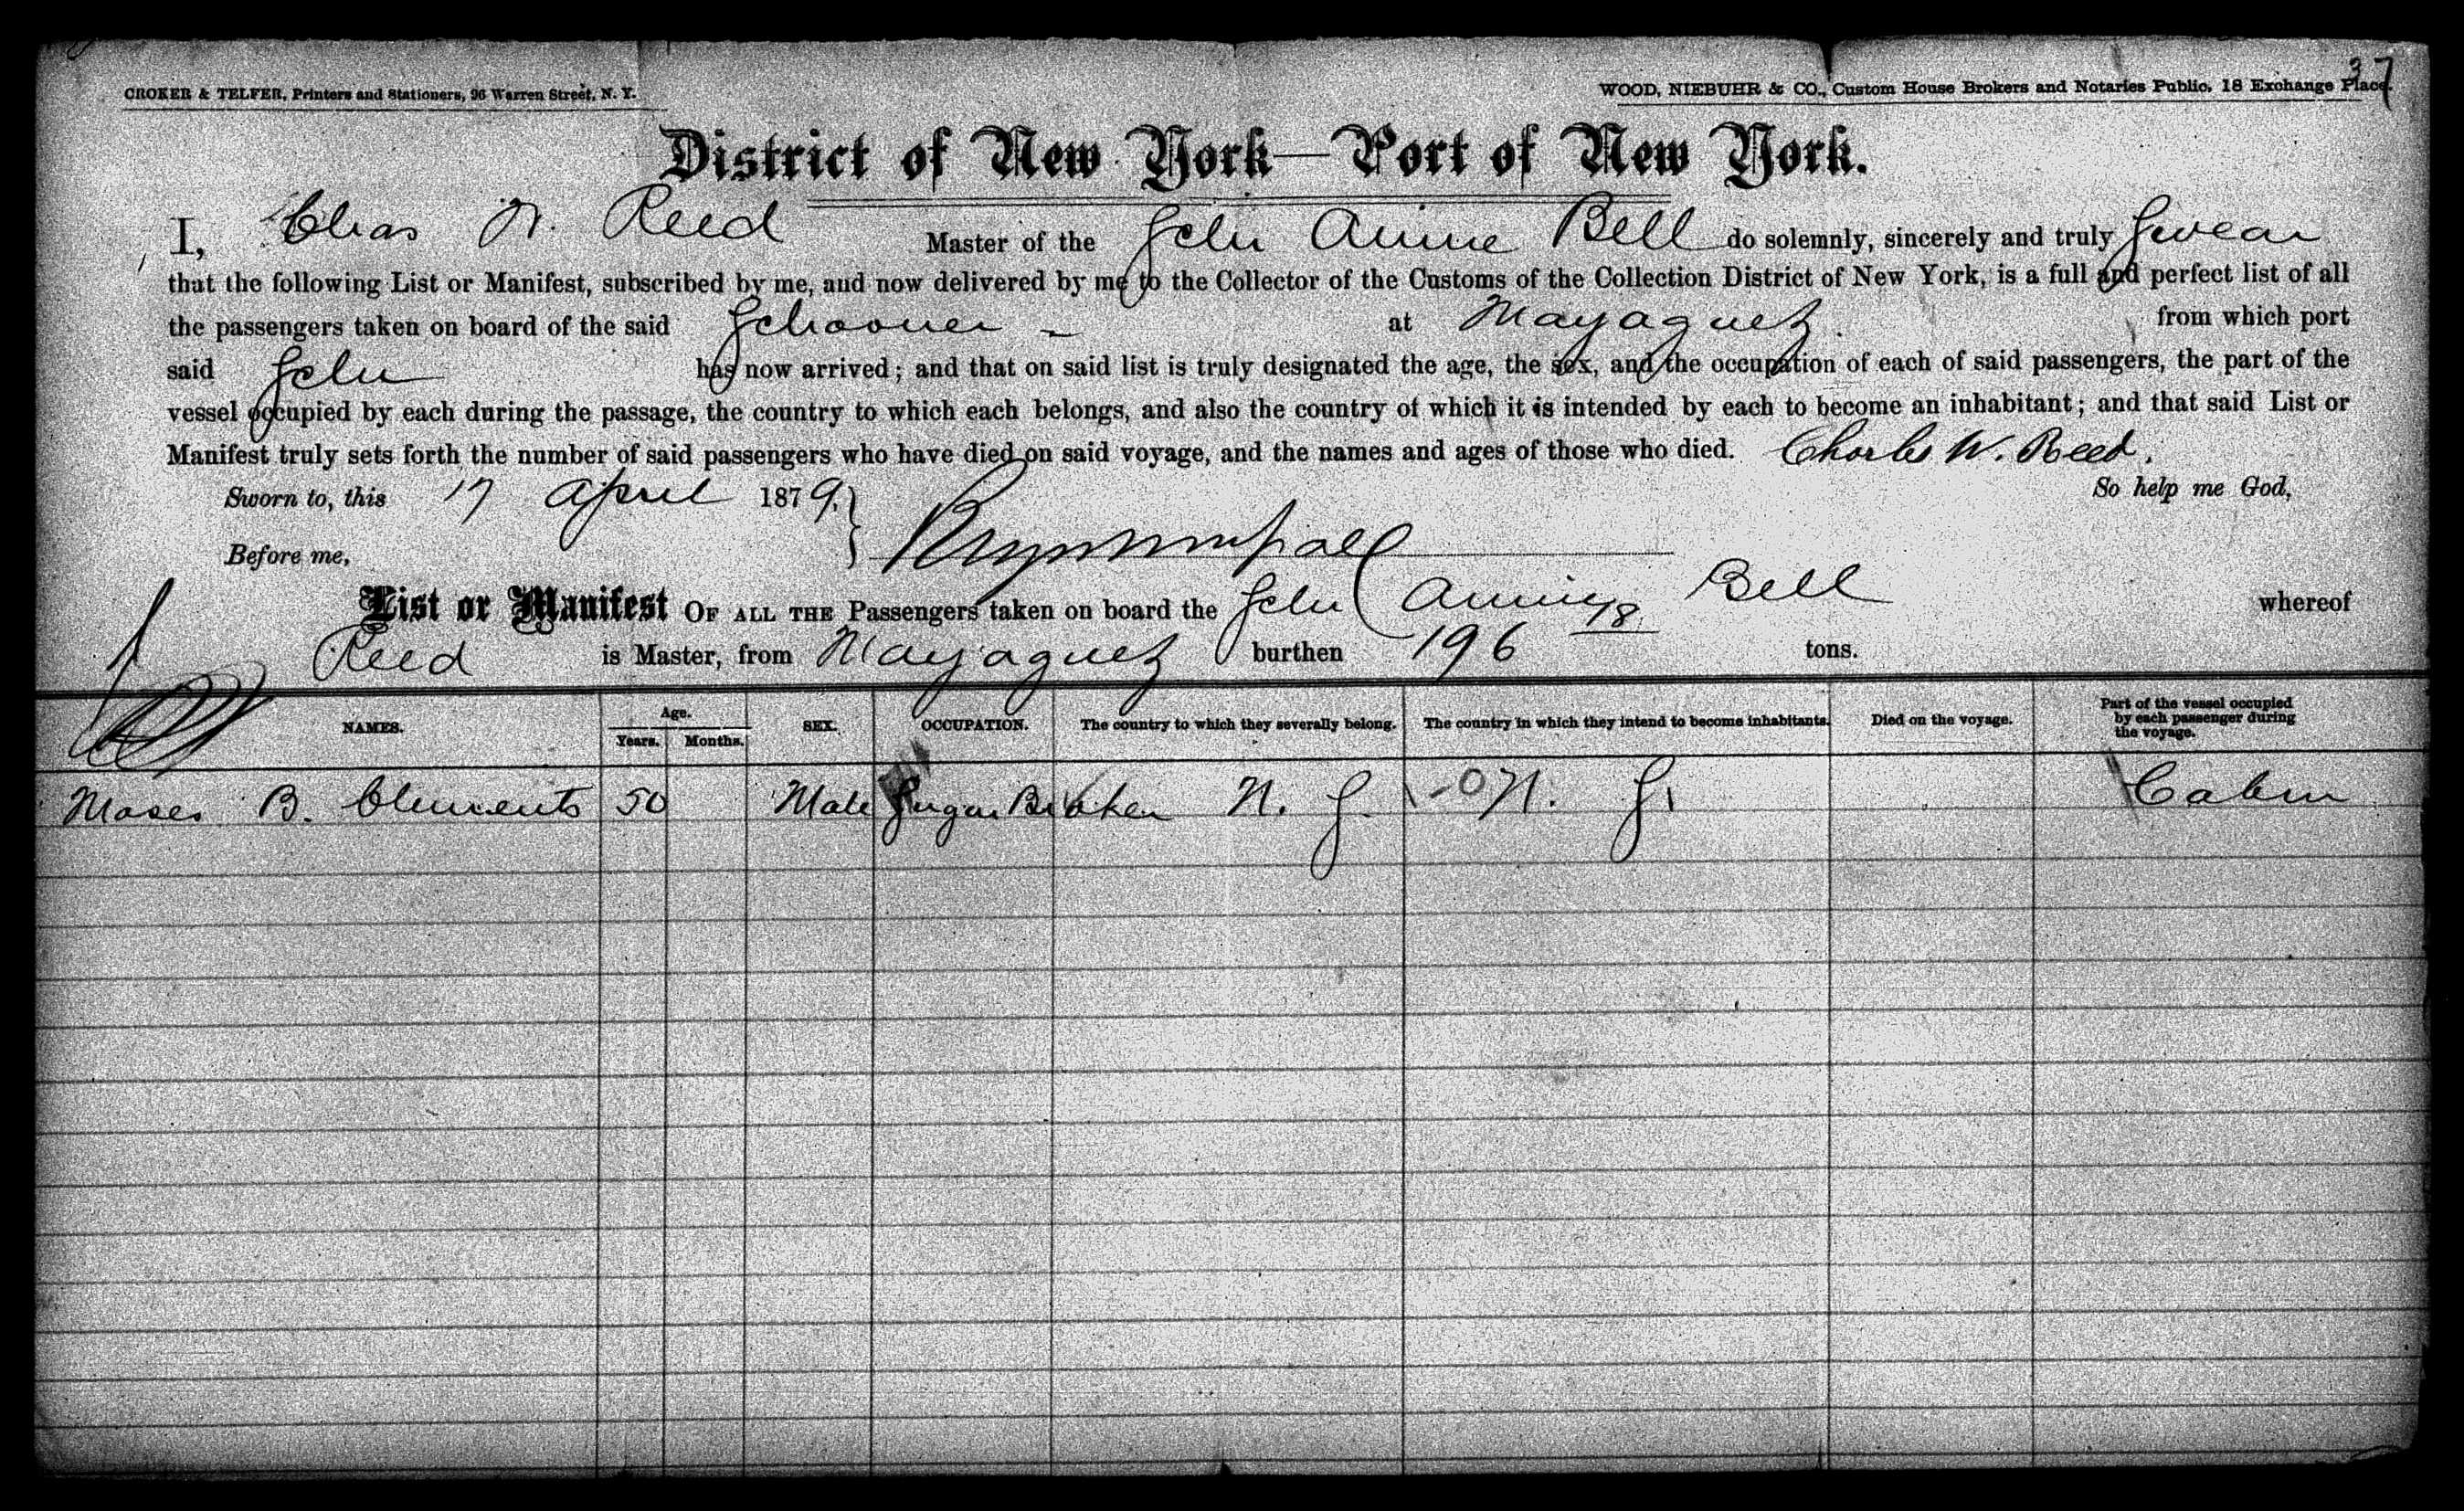 37
CROKER & TELFER, Printers and Stationers, 96 Warren Street, N. Y.
WOOD, NIEBUHR & CO., Custom House Brokers and Notaries Public, 18 Exchange Place.
District of New York—Port of New York.
I, Chas W. Reed Master of the Schr Annie Bell do solemnly, sincerely and truly Swear
that the following List or Manifest, subscribed by me, and now delivered by me to the Collector of the Customs of the Collection District of New York, is a full and perfect list of all
the passengers taken on board of the said Schooner at Mayaguez from which port
said Schr has now arrived; and that on said list is truly designated the age, the sex, and the occupation of each of said passengers, the part of the
vessel occupied by each during the passage, the country to which each belongs, and also the country of which it is intended by each to become an inhabitant; and that said List or
Manifest truly sets forth the number of said passengers who have died on said voyage, and the names and ages of those who died. Charles W. Reed.
Sworn to, this 17 April 1879. So help me God,
Before me,
List or Manifest OF ALL THE Passengers taken on board the Schr Annie Bell whereof
Reed is Master, from Mayaguez burthen 196 tons.
NAMES. Age. Years. Months. SEX. OCCUPATION. The country to which they severally belong. The country in which they intend to become inhabitants. Died on the voyage. Part of the vessel occupied by each passenger during the voyage.
Moses B. Clements 50 Male Sugar Broker N. S. N. S. Cabin